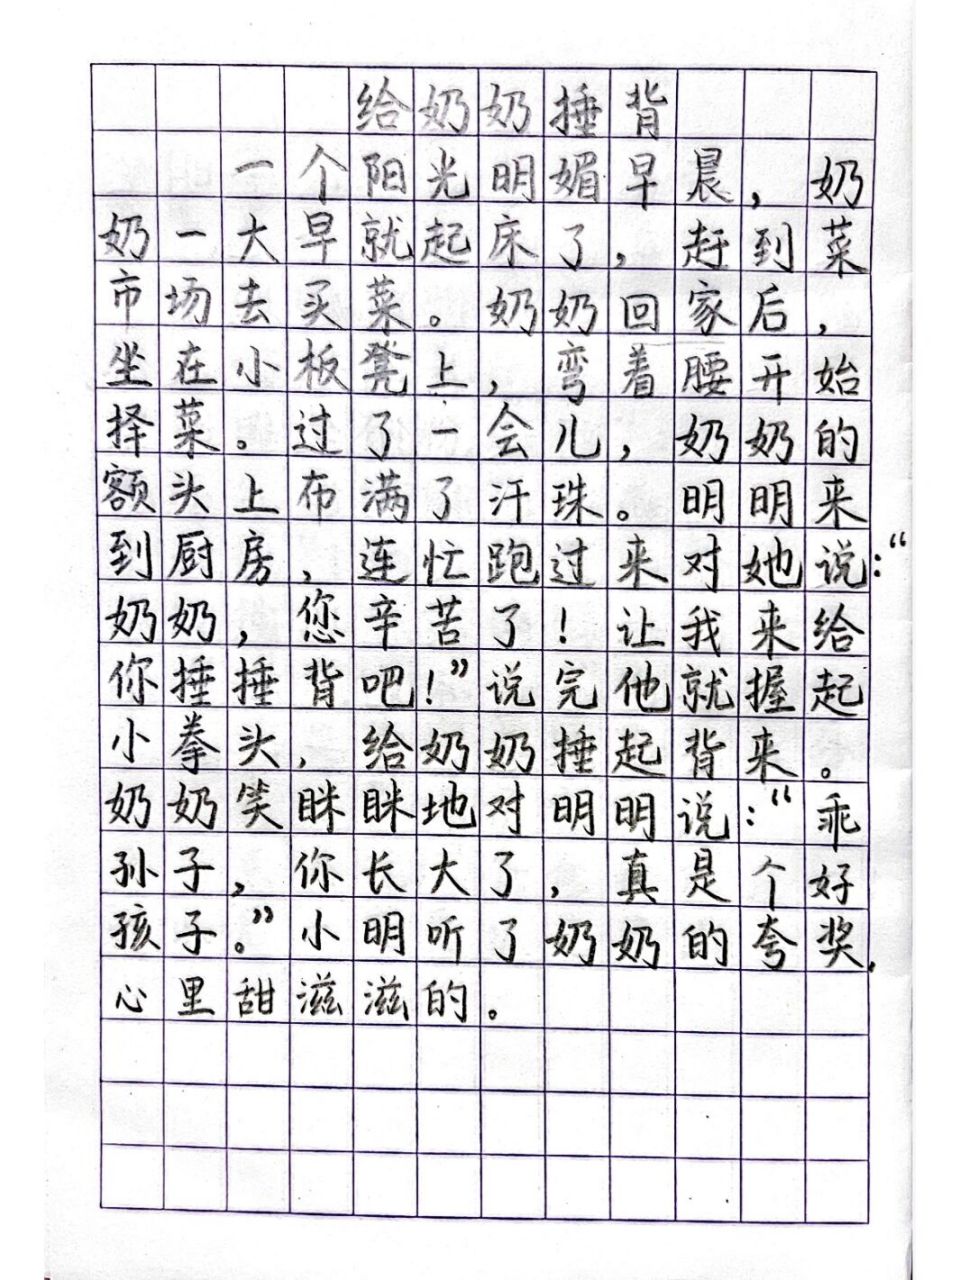 给奶奶捶背
一个阳光明媚早晨，奶
奶一大早就起床了，赶到菜
市场去买菜。奶奶回家后，
坐在小板凳上，弯着腰开始
择菜。过了一会儿，奶奶的
额头上布满了汗珠。明明来
到厨房，连忙跑过来对她说：“
奶奶，您辛苦了！让我来给
你捶捶背吧！”说完他就握起
小拳头，给奶奶捶起背来。
奶奶笑眯眯地对明明说：“乖
孙子，你长大了，真是个好
孩子。”小明听了奶奶的夸奖，
心里甜滋滋的。